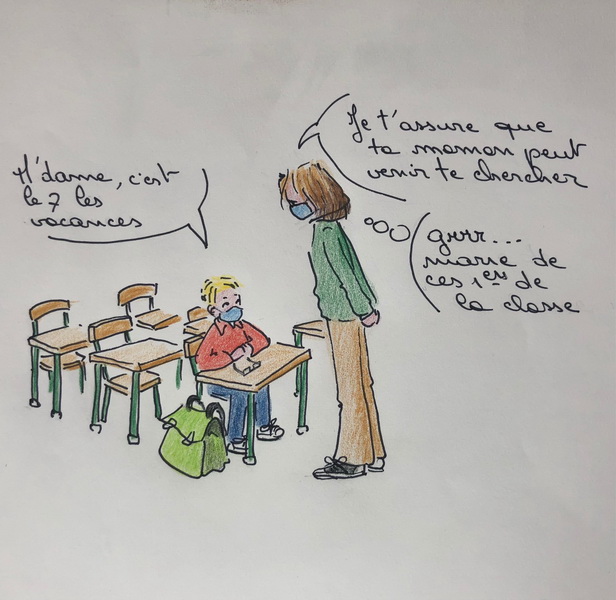 M'dame, c'est
le 7 les
vacances
Je t'assure que
ta maman peut
venir te chercher
grrr...
marre de
ces 1ers de
la classe